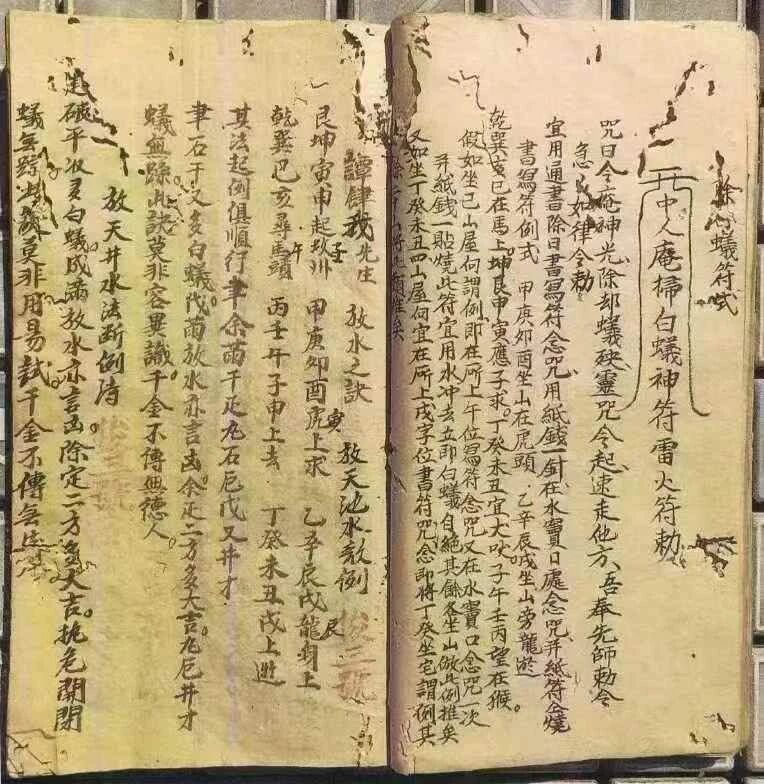 除白蟻符式
中人庵掃白蟻神符雷火符勅
咒曰今庵神光除却蟻殃靈咒今起速走他方吾奉先師勅令
急急如律令勅
宜用通書除日書寫符念咒用紙錢一針在水竇口處念咒并紙符仝燒
書寫符例式 甲庚卯酉坐山在虎頭 乙辛辰戌坐山旁龍遊
乾巽亥巳在馬上 坤艮申寅應子求 丁癸未丑宜犬吠 子午壬丙望在猴
假如坐巳山屋何謂例即在所上午位寫符念咒又在水竇口念咒一次
并紙錢一貼燒此符宜用水冲去立即白蟻自絕其餘各坐山倣此例推矣
又如坐丁癸未丑四山屋何宜在所上戌字位書符咒念即將丁癸坐宅謂例其
餘二十山符頭推矣
譚肆我先生 放水之訣 放天池水放例
艮坤寅申起坎州 壬 甲庚卯酉虎上求 寅 乙辛辰戌龍頭上 辰
乾巽巳亥尋馬頭 午 丙壬午子申上去 丁癸未丑戌上遊
其法起例俱順行 聿余苗千疋九石卮戊又井才
聿石千又多白蟻 代苗放水亦言凶 余疋二方多大吉 九卮井才
蟻無踪 此訣莫非容異識 千金不傳無德人
放天井水法斷例詩
建破平收多白蟻 成滿放水亦言凶 除定二方多大吉 執危開閉
蟻無踪 此訣莫非用易試 千金不傳無
俊三號
俊三號